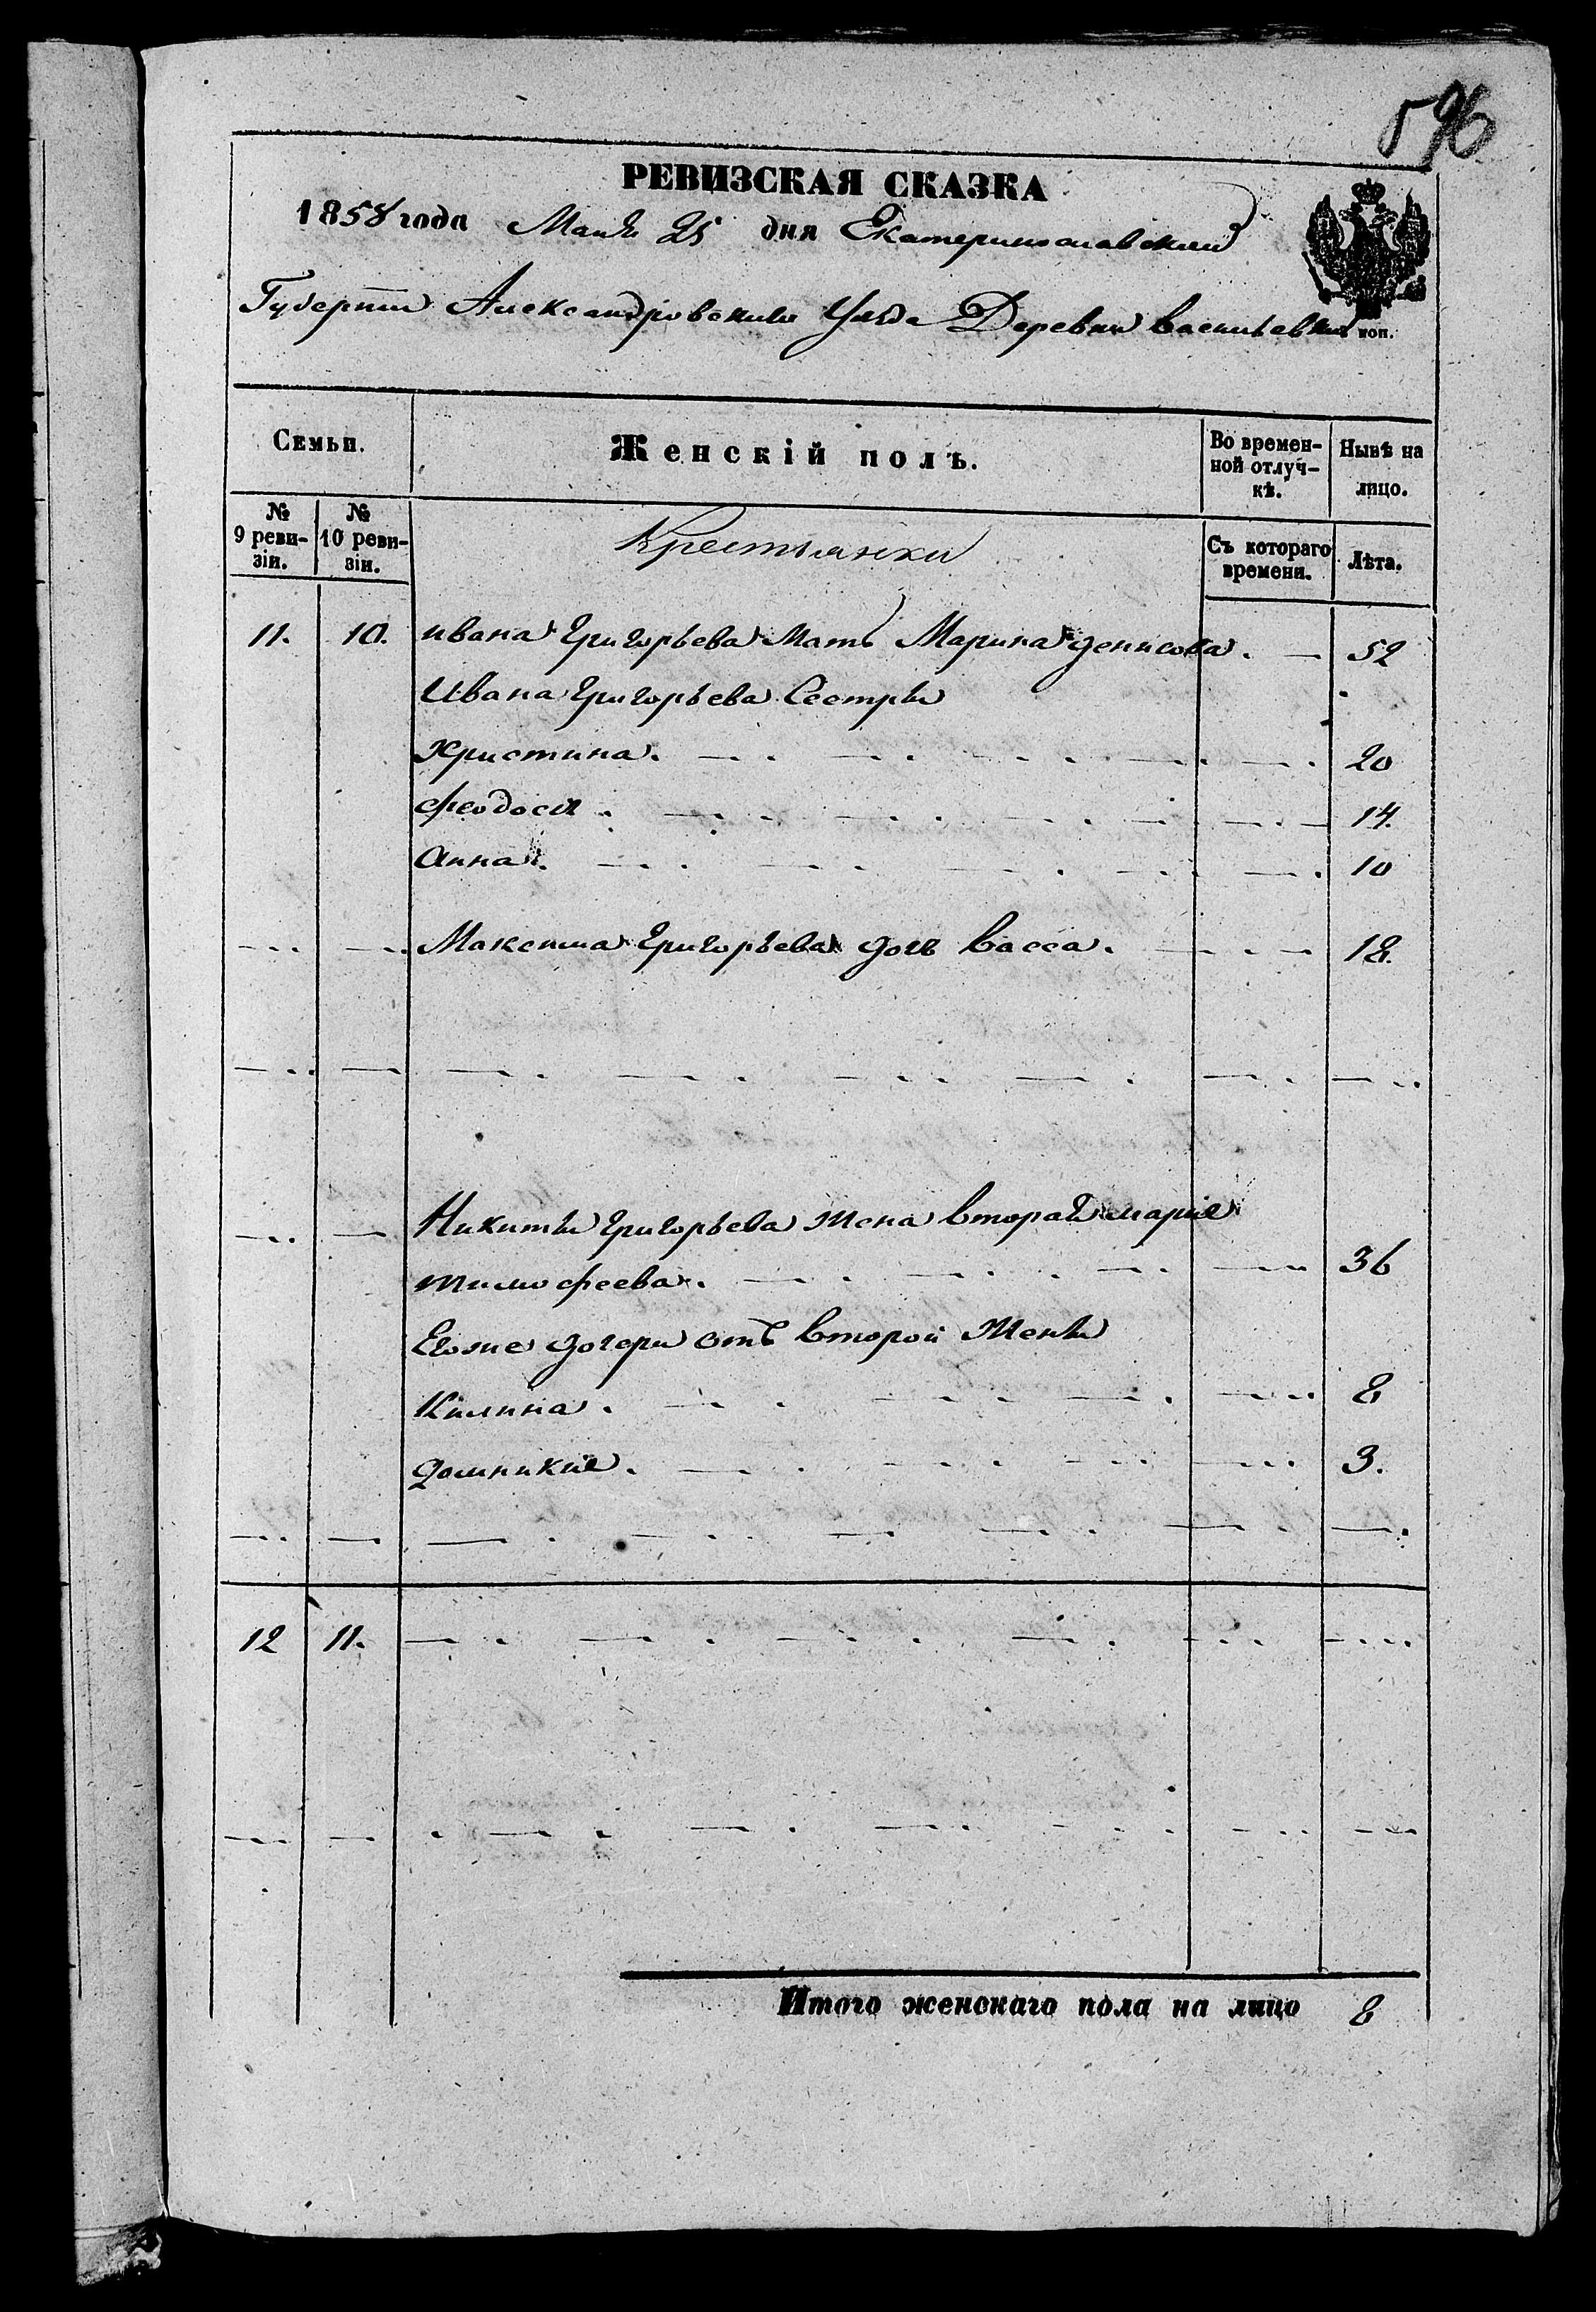 596
РЕВИЗСКАЯ СКАЗКА
1858 года Маія 25 дня Екатеринославской
Губерніи Александровскаго Уѣзда Деревни Васильевки
коп.
Семьи.
Женскій полъ.
Во времен-
ной отлуч-
кѣ.
Нынѣ на
лицо.
№
9 реви-
зіи.
№
10 реви-
зіи.
Крестьянки
Съ котораго
времени.
Лѣта.
11. 10. Ивана Григорьева Мать Марина Денисова. 52
Ивана Григорьева Сестры
Христина. 20
Феодосія. 14.
Анна. 10
Максима Григорьева дочь Васса. 18.
Никиты Григорьева жена вторая Марія
Тимофеева. 36
Егоже дочери отъ второй жены
Килина. 8
Домникія. 3.
12 11.
Итого женскаго пола на лицо 8